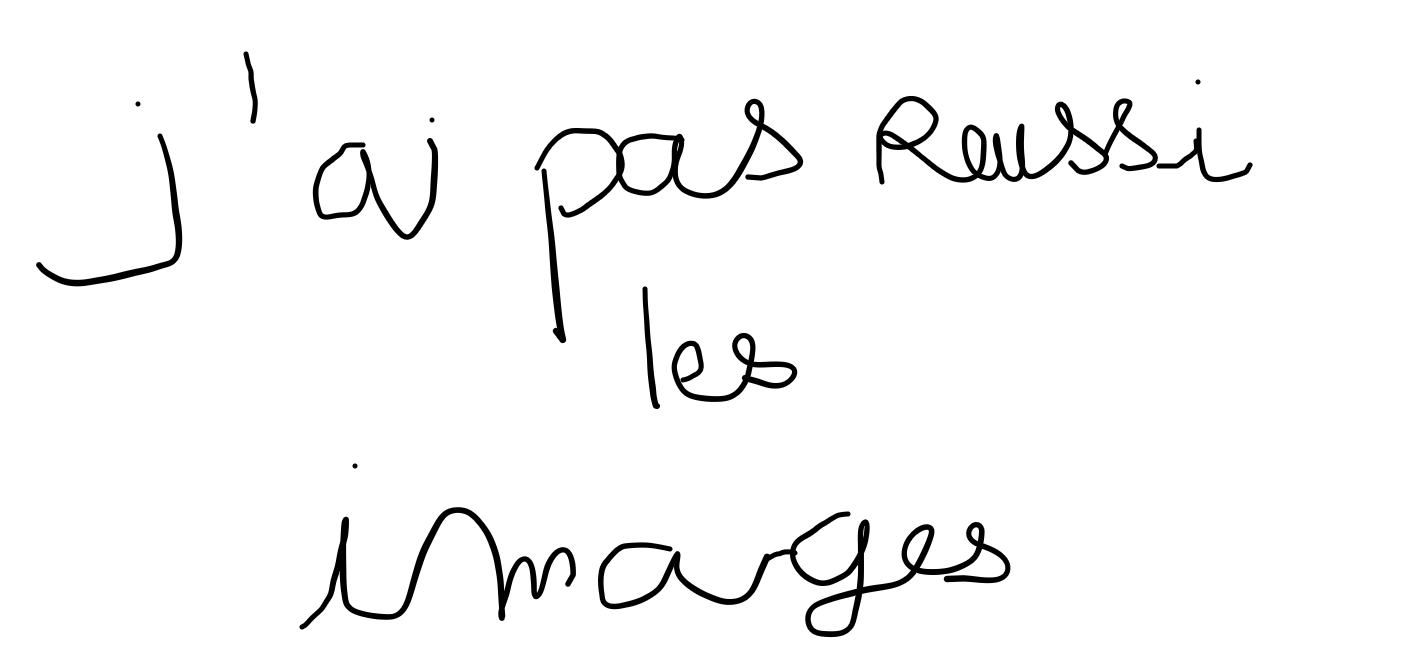 j'ai pas Reussi
les
images